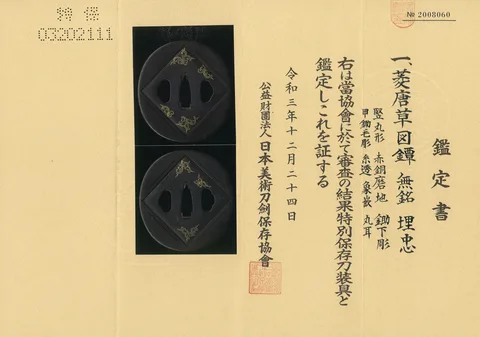 № 2008060
特保
03202111
鑑定書
一、菱唐草図鐔 無銘 埋忠
竪丸形 赤銅磨地 鋤下彫
甲鋤毛彫 糸透 象嵌 丸耳
右は當協會に於て審査の結果特別保存刀装具と
鑑定しこれを証する
令和三年十二月二十四日
公益財團法人 日本美術刀劍保存協會